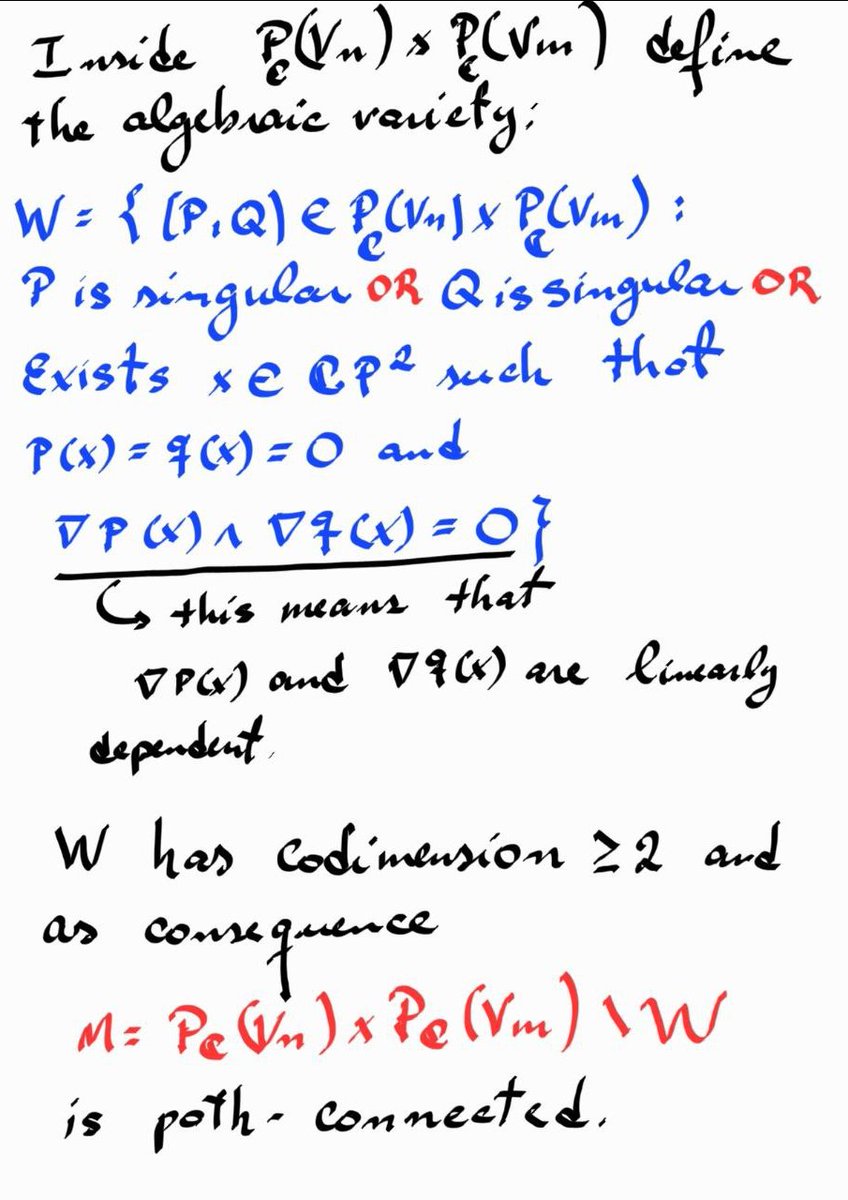 Inside P_C(Vn) x P_C(Vm) define
the algebraic variety:
W = { (P,Q) ∈ P_C(Vn) x P_C(Vm) :
P is singular OR Q is singular OR
Exists x ∈ CP² such that
P(x) = q(x) = 0 and
∇P(x) ∧ ∇q(x) = 0 }
↳ this means that
∇P(x) and ∇q(x) are linearly
dependent.
W has codimension ≥ 2 and
as consequence
M = P_C(Vn) x P_C(Vm) \ W
is path-connected.